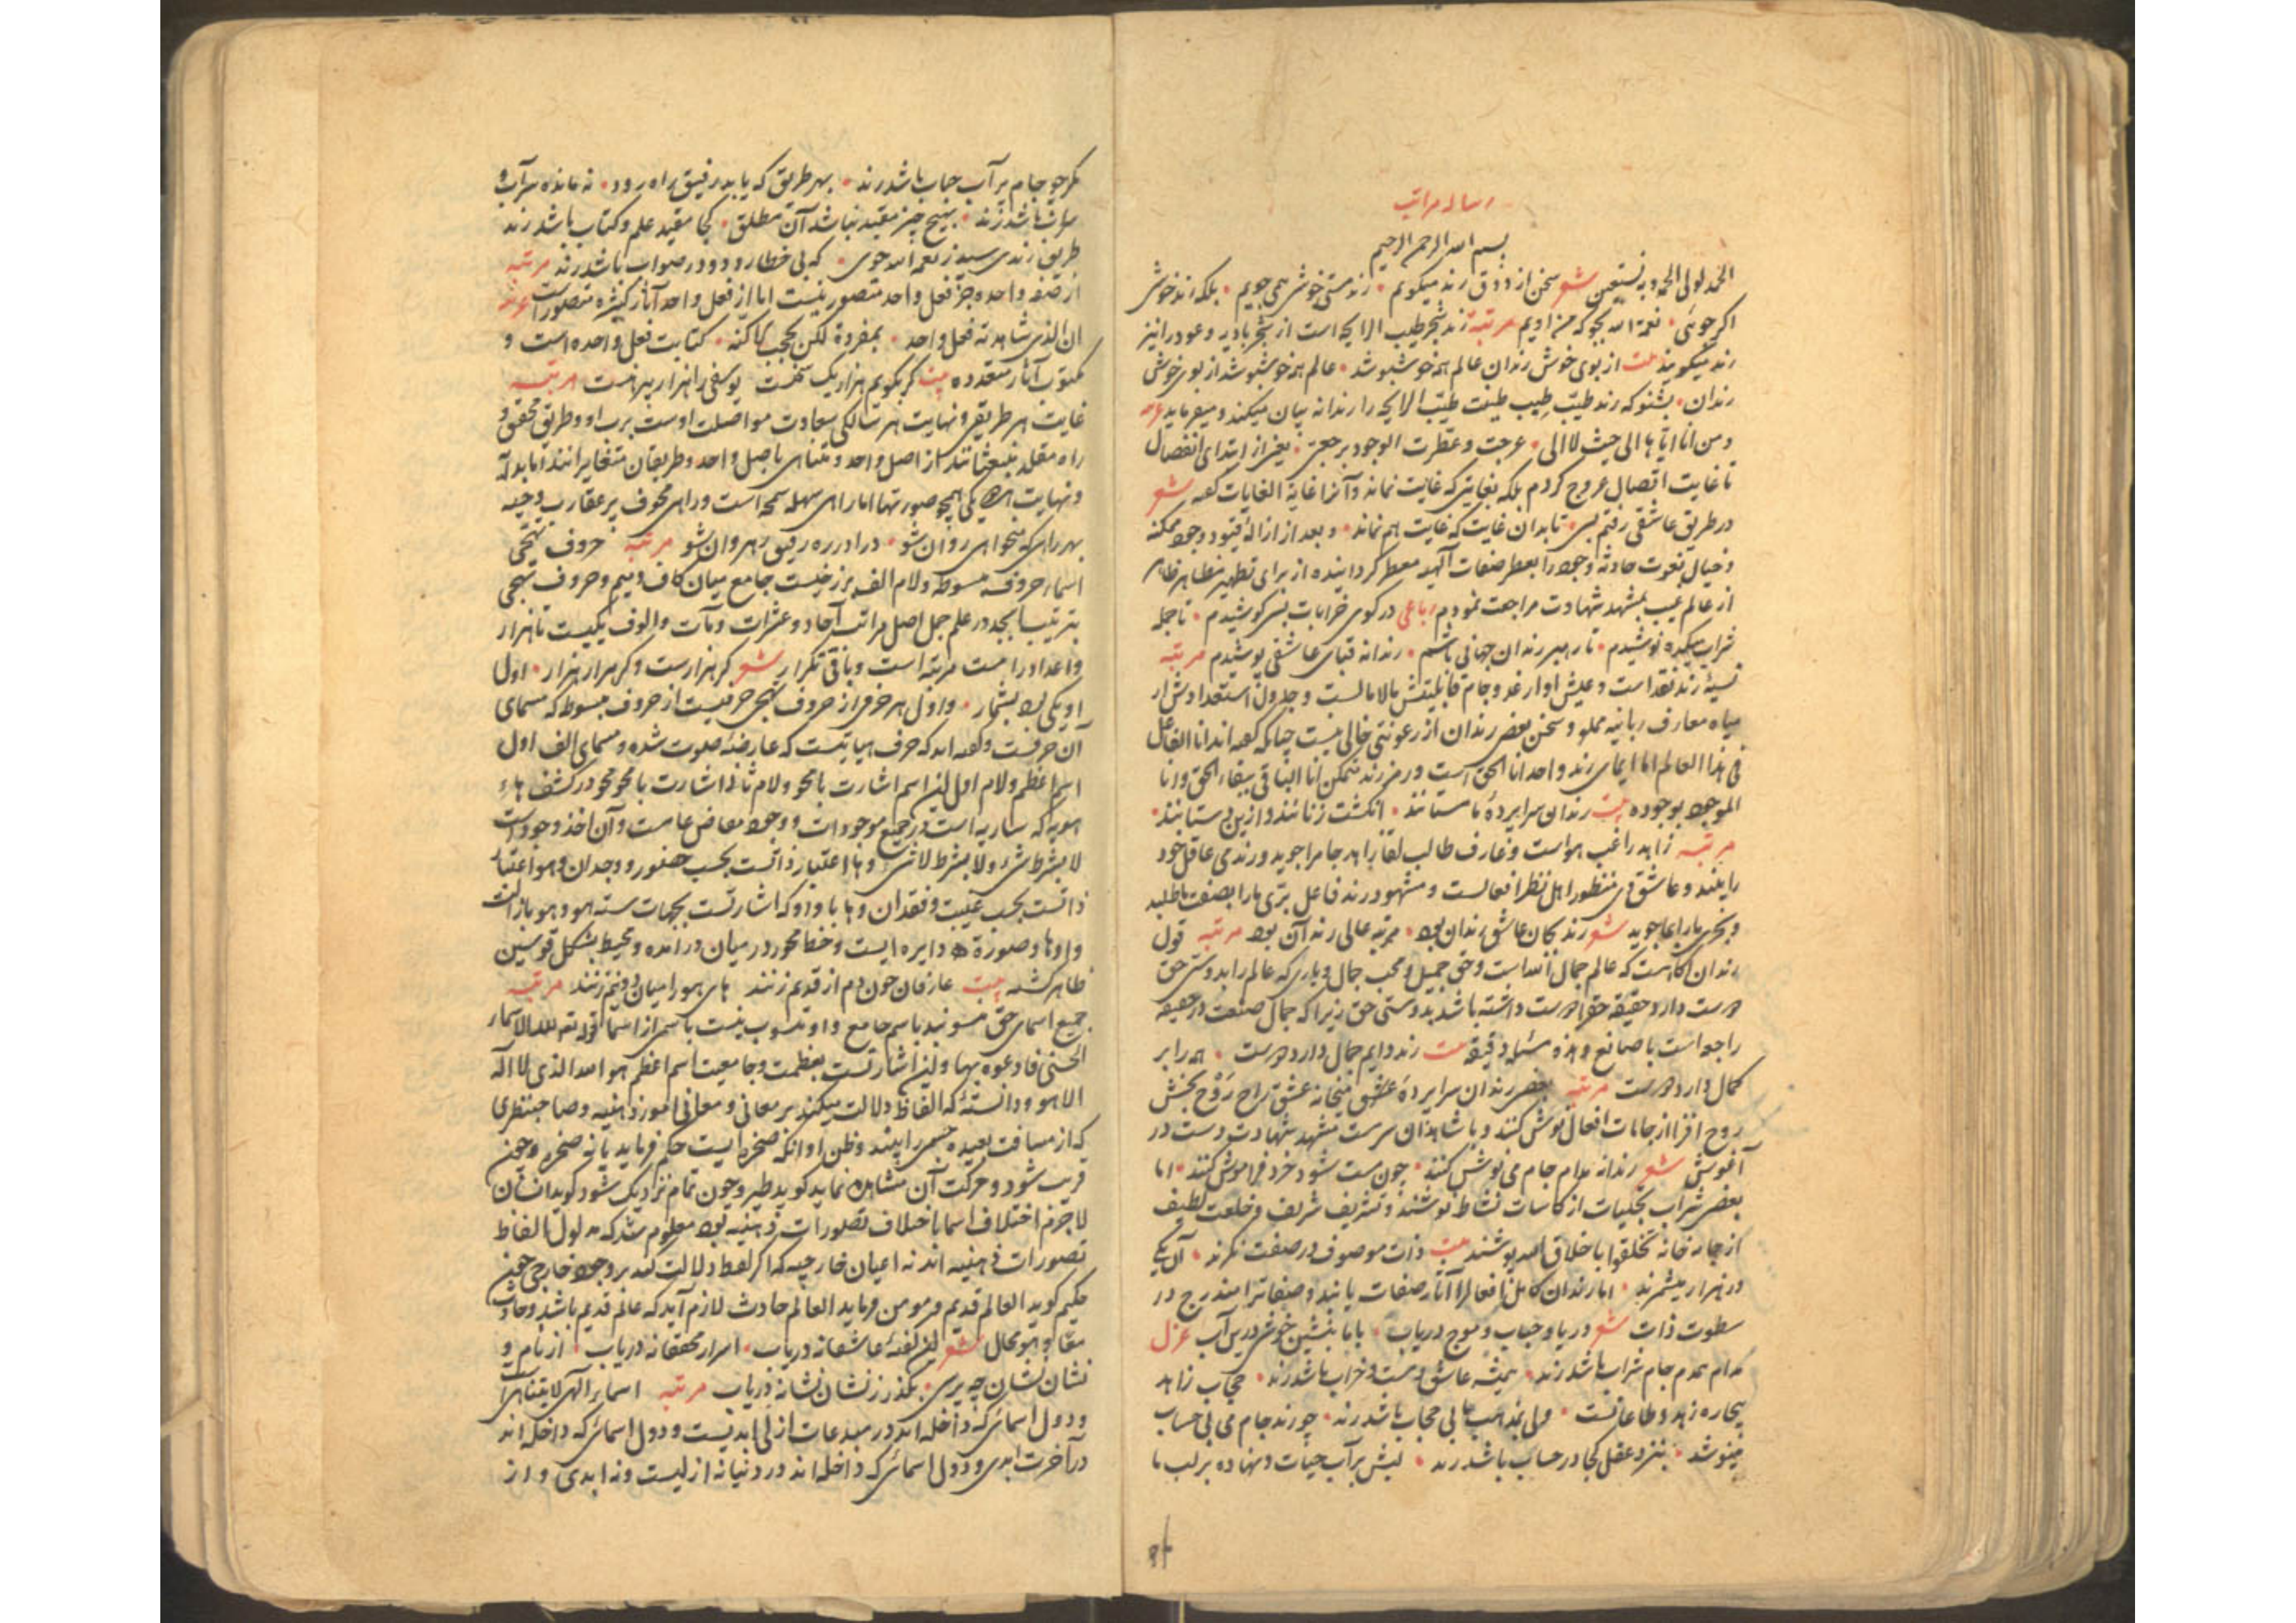 رساله مراتب
بسم الله الرحمن الرحیم
الحمد لولی الحمد وبه نستعین شعر سخن از ذوق رند میگویم • رند مستی خوش همی جویم • بلکه رند خوش
اکر جوئی • نعمة الله بجو که من اویم مرتبه رند شجر طیب الرایحه است از شجر بادیه وعود را نیز
رند میگویند بیت از بوی خوش رندان عالم همه خوشبو شد • عالم همه خوشبو شد از بوی خوش
رندان • بشنو که رند طیب طیب طینت طیب الرایحه را رندانه بیان میکند و میفرماید
ومن انا ایاها الی حیث لا الی • عرجت وعطرت الوجود برجعتی • یعنی از ابتدای انفصال
تا غایت اتصال عروج کردم بلکه بغایتی که غایت نماند وآنرا غایة الغایات کفته شعر
در طریق عاشقی رفتم بسی • تا بدان غایت که غایت هم نماند • وبعد از ازالهٔ قیود وجود ممکنه
وخیال نعوت حادثه وجود را بعطر صفات آلهیه معطر کردانیده از برای تطهیر مظاهر طاهر
از عالم غیب بمشهد شهادت مراجعت نمودم رباعی در کوی خرابات بسی کوشیدم • تا جمله
شراب میکده نوشیدم • تا رهبر رندان جهانی باشم • رندانه قبای عاشقی پوشیدم مرتبه
نسیهٔ رند نقد است وعیش او ارغد وجام قابلیتش مالامالست وجدول استعدادش از
میاه معارف ربانیه مملو وسخن بعضی رندان از رعونتی خالی نیست چنانکه کفته اند انا الفاعل
فی هذا العالم اما ایمای رند واحد انا الحق است ورمز رند متمکن انا الباقی ببقاء الحق وانا
الموجود بوجوده بیت رندان سراپردهٔ ما مستانند • انکشت زنانند وازین دستانند •
مرتبه زاهد راغب هواست وعارف طالب لقا زاهد جامه را جوید ورند می عاقل خود
را بیند وعاشق وی منظور اهل نظر افعالست ومشهود رند فاعل بری ما را بصنعت ما طلبد
وبحری ما را بما جوید شعر رند بجان عاشق رندان بود • مرتبهٔ عالی رند آن بود مرتبه قول
رندان کامست که عالم جمال الله است وحق جمیل ومحب جمال و یاری که عالم را بدوستی حق
دوست دارد حقیقة حق را دوست داشته باشد بدوستی حق زیرا که جمال صنعت در حقیقة
راجع است با صانع وهذه مسئلة دقیقة بیت رند دایم جمال دارد دوست • همه را بر
کمال دارد دوست مرتبه بعضی رندان سراپردهٔ عشق میخانهٔ عشق راح روح بخش
روح افزا از جامات افعال نوش کنند وبا شاهدان سرمست مشهد شهادت دست در
آغوش شعر رندانه مدام جام می نوش کنند • چون مست شود خرد فراموش کنند • اما
بعضی شراب تجلیات از کاسات نشاط نوشند وتشریف شریف وخلعت لطیف
از جامه خانهٔ تخلقوا باخلاق الله پوشند بیت ذات موصوف در صفت نکرند • آن یکی
در هزار میشمرند • اما رندان کامل افعال را آثار صفات یابند وصفات را مندرج در
سطوت ذات شعر دریا وحباب وموج دریاب • با ما بنشین خوشی درین آب غزل
مدام همدم جام شراب باشد رند • همیشه عاشق ومست وخراب باشد رند • حجاب زاهد
بیچاره زهد وطاعاتست • ولی بمذهب ما بی حجاب باشد رند • چو رند جام می بی حساب
مینوشد • بنزد عقل کجا در حساب باشد رند • لبش بر آب حیات ونهاده بر لب ما
مکر چو جام پر آب حباب باشد رند • بهر طریق که یابد رفیق راه رود • نه مانده سراب و
سراب باشد رند • بهیچ چیز مقید نباشد آن مطلق • کجا مقید علم وکتاب باشد رند
طریق رندی سید ز نعمة الله جوی • که بی خطا رود ودر صواب باشد رند مرتبه
از صفة واحده جز فعل واحد متصور نیست اما از فعل واحد آثار کثیره متصور است
ان الذی شاهدته فعل واحد • بمفرده لکن بحجب الاکنه • کتابت فعل واحده است و
مکتوب آثار متعدده بیت کر بکویم هزار یک سخنست یوسفی را هزار پیرهنست مرتبه
غایت هر طریقی ونهایت هر سالکی سعادت مواصلت اوست برب او وطریق محقق و
راه مقلد منبعثانند از اصل واحد ومتناهی باصل واحد وطریقان متغایرانند
ونهایت هر دو یکی صورتها اما راهی سهله سمحه است وراهی مخوف پر عقارب وحیه
بهر راهی که میخواهی روان شو • درا در ره رفیق رهروان شو مرتبه حروف تهجی
اسماء حروف مبسوطه ولام الف برزخیست جامع میان کاف ومیم وحروف تهجی
بترتیب ابجد در علم جمل اصل مراتب آحاد وعشرات ومآت والوف یکیست تا هزار
واعداد را بیست مرتبه است وباقی تکرار شعر کر هزارست وکر هزار هزار • اول
او یکی بود بشمار • واول هر حرفی از حروف تهجی حرفیست از حروف مبسوط که مسمای
آن حرفست وکفته اند که حرف هیاتیست که عارضهٔ صوت شده ومسمای الف اول
اسم اعظم ولام اول این اسم اشارت با محو ولام ثانی اشارت با محو محو در کشف هاء
هویه که ساریه است در جمیع موجودات ووجود مفاض عامست وآن اخذ وجود است
لا بشرط شیء ولا بشرط لا شیء وها اعتبار ذاتست بحسب حضور ووجدان وهو اعتبار
ذاتست بحسب غیبت وفقدان وها با واو که اشارتست بجهات سته هو وهو
واو وها وصورة ه دایره ایست وخط محور در میان در آمده ومحیط بشکل قوسین
ظاهر کشته بیت عارفان چون دم از قدیم زنند های هو را میان دو نیم زنند مرتبه
جمیع اسمای حق منسوبند باسم جامع واو منسوب نیست باسمی از اسما قوله تعالی لله الاسماء
الحسنی فادعوه بها واین اشارتست بعظمت وجامعیت اسم اعظم هو الله الذی لا اله
الا هو ودانستهٔ که الفاظ دلالت میکنند بر معانی ومعانی امور ذهنیه وصاحبنظری
که از مسافت بعیده جسمی را بیند وظن او آنکه صخره ایست حکم فرماید بانه صخره وچون
قریب شود وحرکت آن مشاهده نماید کوید طیر وچون تمام نزدیک شود کوید انسان
لاجرم اختلاف اسما باختلاف تصورات ذهنیه بود معلوم شد که مدلول الفاظ
تصورات ذهنیه اند نه اعیان خارجیه که اکر لفظ دلالت کند بر وجود خارجی چون
حکیم کوید العالم قدیم ومومن فرماید العالم حادث لازم آید که عالم قدیم باشد وحادث
معا وهو محال شعر این لغهٔ عاشقانه دریاب • اسرار محققانه دریاب • از نام و
نشان نشان چه پرسی • بکذر ز نشان نشانه دریاب مرتبه اسماء الهی لا یتناهی است
ودول اسمائی که داخله اند در مبدعات ازلی ابدیست ودول اسمائی که داخله اند
در آخرت ابدی ودول اسمائی که داخله اند در دنیا نه ازلیست ونه ابدی واز